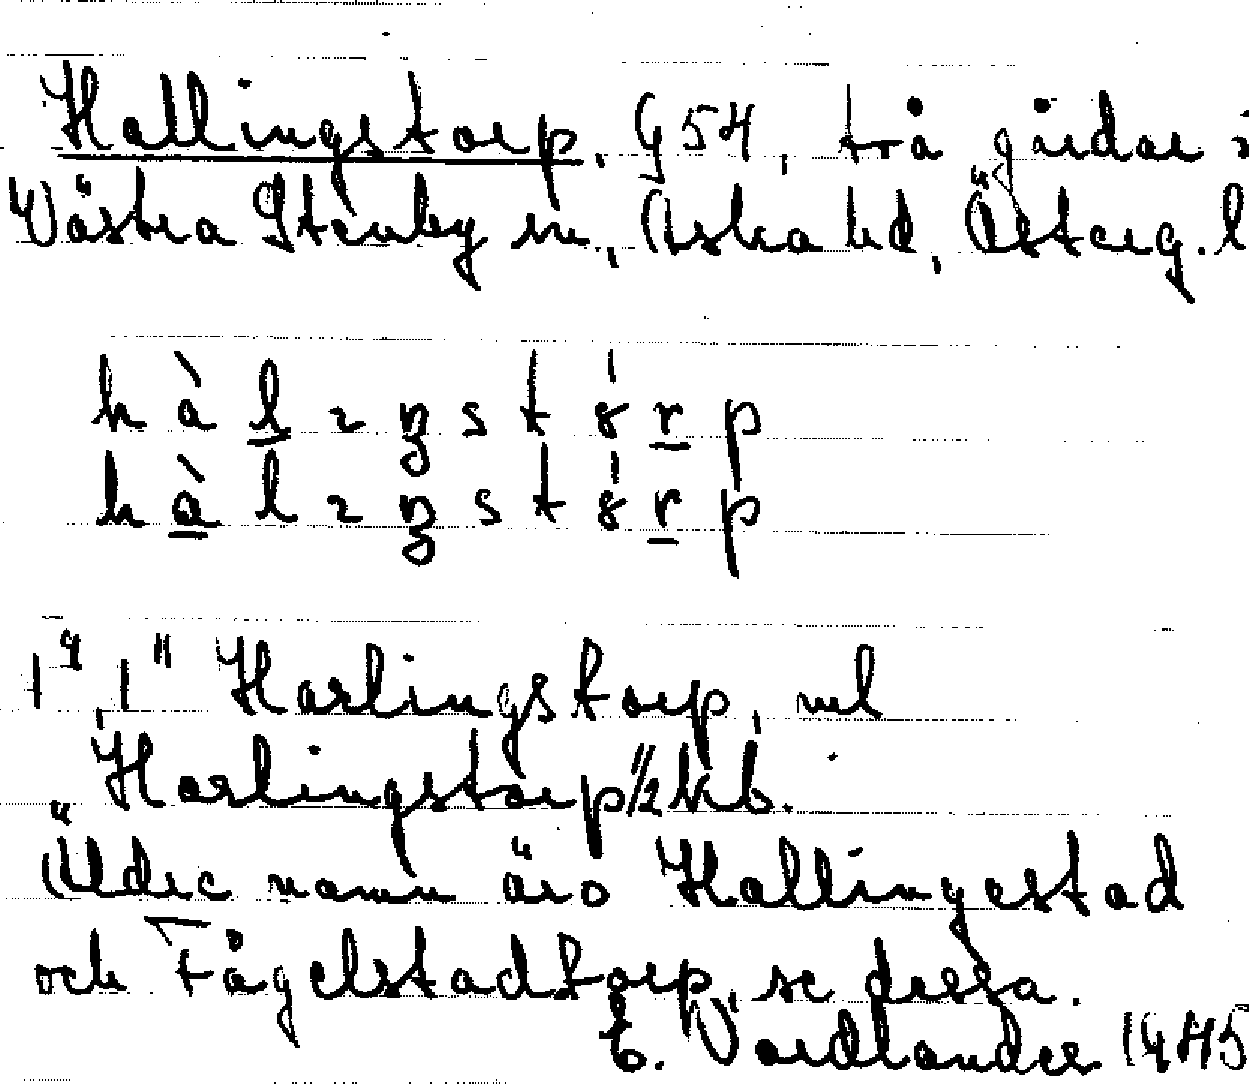 Hallingstorp, G 54, två gårdar i
Västra Stenby sn, Aska hd, Österg. l
hàlıŋstórp
hàlıŋstórp
Harlingstorp, ml
Harlingstorp 1/2 kb.
Äldre namn äro Hallingestad
och Fågelstadtorp, se dessa.
E. Nordlander 1945